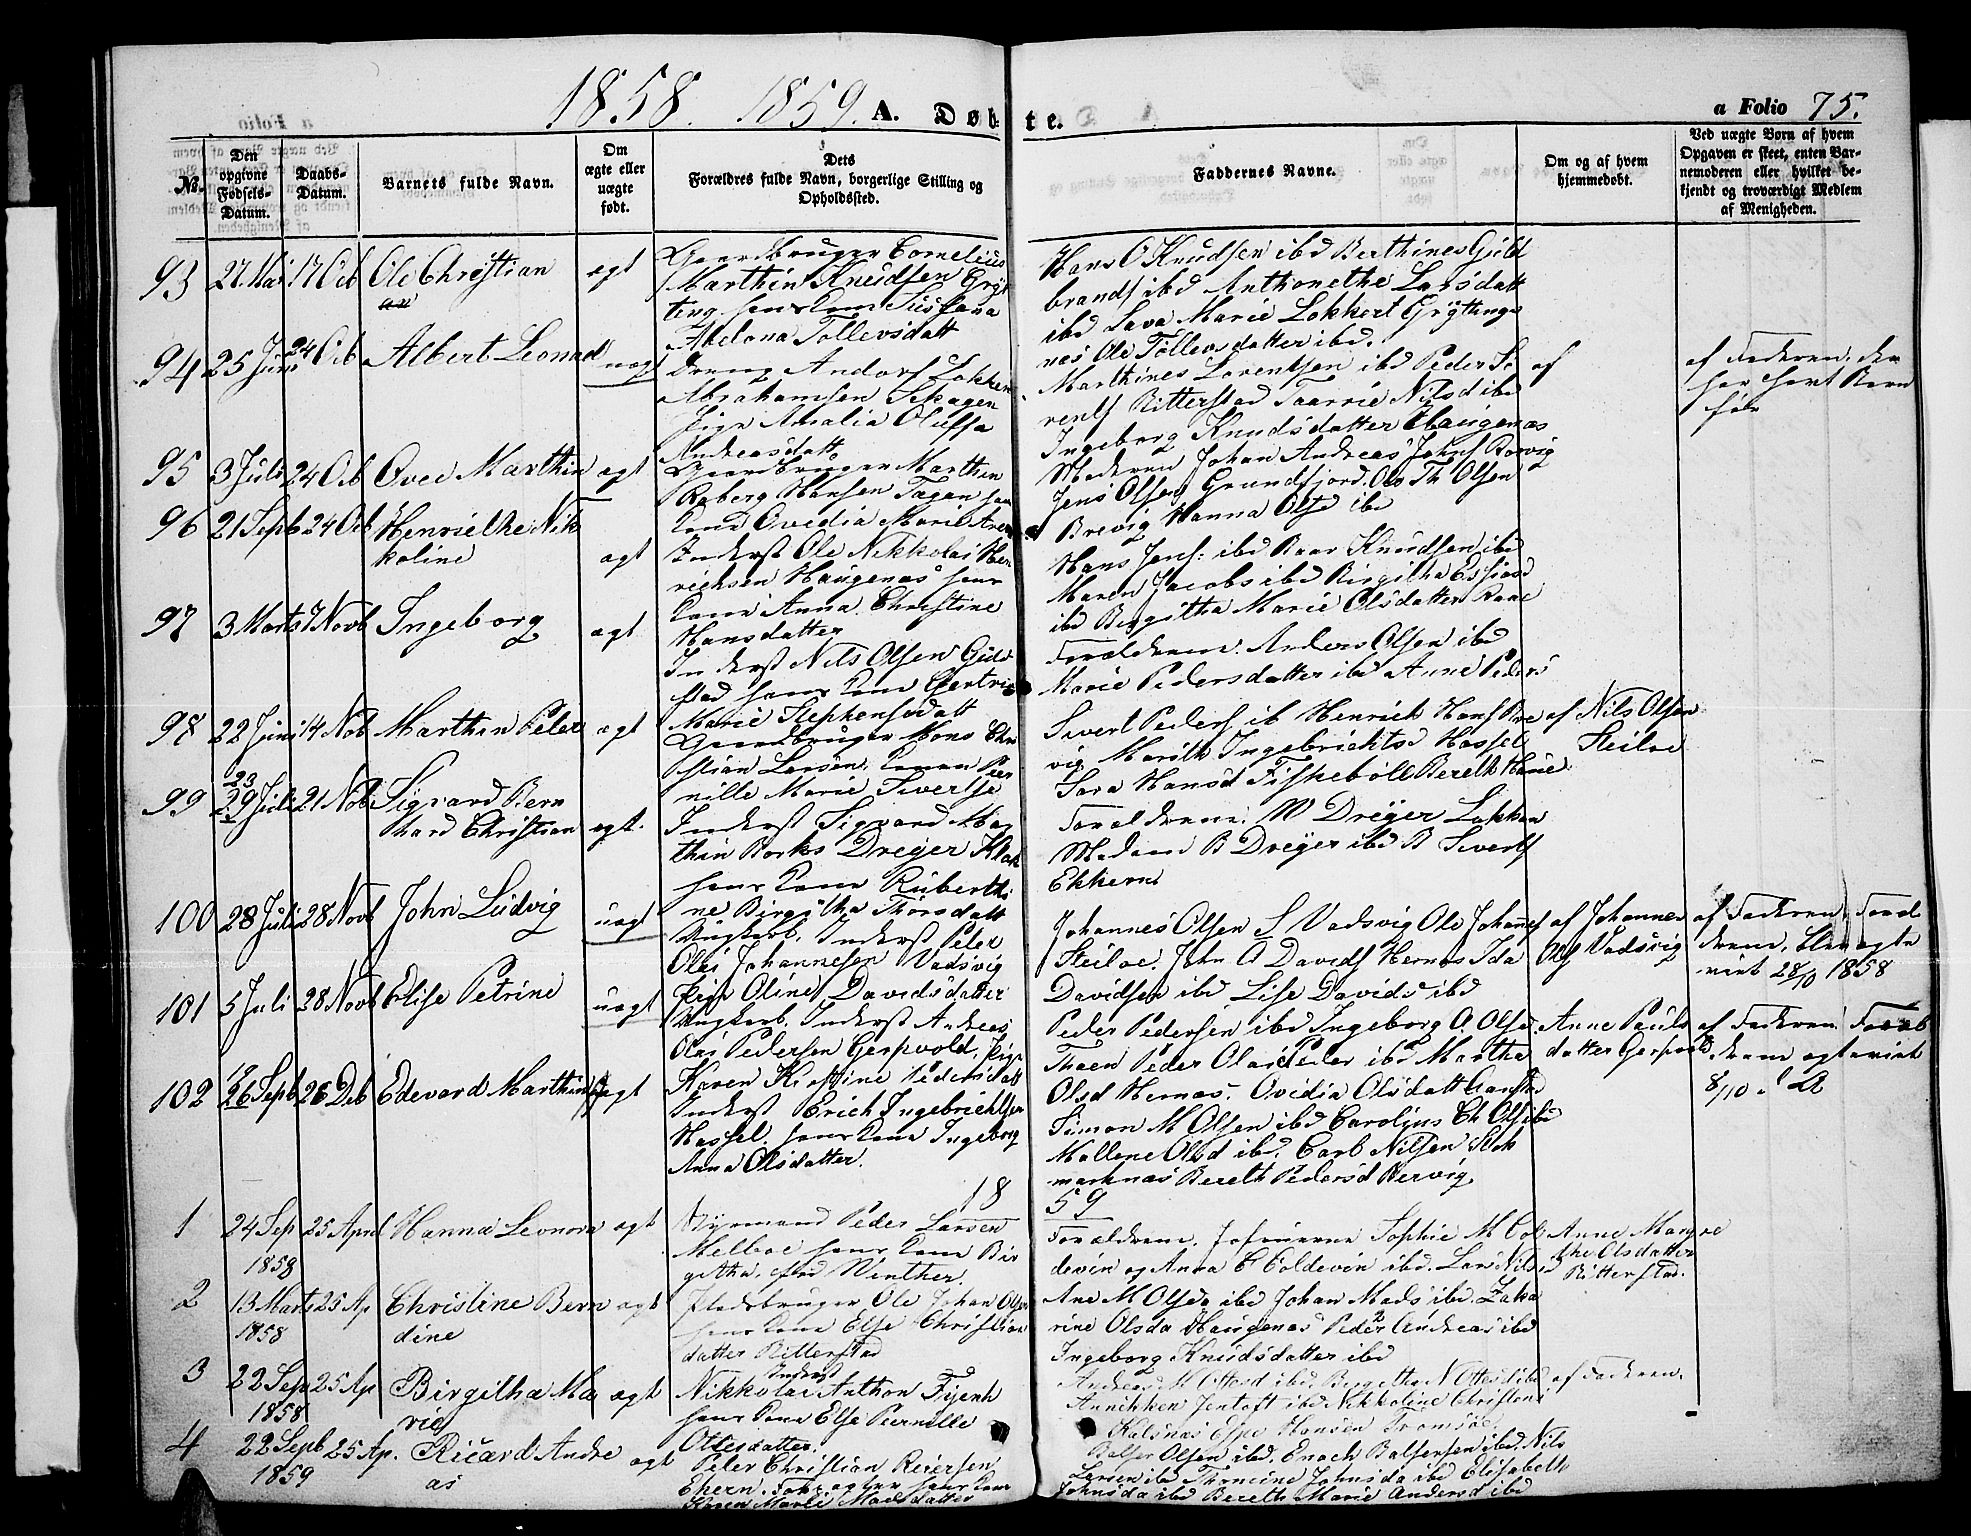 1858. 1859. A. Døbte. a Folio 75.
No. Den opgivne Fødsels-Datum. Daabs-Datum. Barnets fulde Navn. Om ægte eller uægte født. Dets Forældres fulde Navn, borgerlige Stilling og Opholdssted. Faddernes Navne. Om og af hvem hjemmedøbt. Ved uægte Børn af hvem Opgaven er skeet, enten Barnemoderen eller hvilket bekjendt og troværdigt Medlem af Menigheden.
93 27 Mai 17 Octb Ole Christian ægt
Gaardbruger Cornelius
Marthin Knudsen Gryt
ting hans Kone
Abelona Tollevsdatt
Hans O Knudsen ibd Berthines Guld
brands ibd Anthonethe Larsdatt
ibd Sara Marie Lokkert Grÿttings
næs Ole Tollevsdatter ibd.
94 25 Juni 24 Octb Albert Leonard uægt
Dreng Andors Lokken
Abrahamsen Skagen
Pige Amalia Oluffa
Andreasdatt
Marthines Lorentsen ibd Peder Sø
rens Ritterstad Nilsd ibd
Ingeborg Knudsdatter Haugenæs
af
af Faderen. den
har havt Barn
før
95 3 Juli 24 Octb Ovee Marthin ægt
Gaardbruger Marthin
Roberg Hansen hans
Kone Ovedia Marie
Moderen Johan Andreas Johns Borvig
Jens Olsen Grundfjord. Ole Th Olsen
Brevig Hanna Olsd ibd
96 21 Septb 24 Octb Henriethe Nik
koline ægt
Inderst Ole Nikkolai Hen
richsen Haugenæs hans
Kone Anna Christine
Hansdatter
Hans Jens: ibd Baar Knudsen ibd
Maren Jacobs ibd Birgitha
ibd Birgitha Marie Olsdatter
97 3 Marts 7 Novb Ingeborg ægt
Inderst Nils Olsen Guld
stad hans Kone Gertrue
Marie Stephensdatt
Forældrene. Anders Olsen ibd
Marie Pedersdatter ibd Anne Peders
98 22 Juni 14 Nob Marthin Peter ægt
Gaardbruger Mons Chri
stian Larsen. Konen Per
nille Marie Sivertsd
Sivert Peders ib Henrich Hans
vig Marith Ingebrichtsd Hassel
Sara Hansd Fiskebøll Bereth
af Nils Olsen
Steiloe
99 23 29 Juli 21 Nob Sigvard Bern
hard Christian ægt.
Inderst Sigvard Mar
thin Borks Dreÿer
hans Kone Ruberthi
ne Birgitha Thorsdatt
Forældrene. W Dreÿer Lokken
Madame B Dreÿer ibd B Siverts
Ekkeren
100 28 Juli 28 Novb John Ludvig uægt
Ungkarl. Inderst Peter
Olai Johannesen Vadsvig
Pige Oline Davidsdatter
Johannes Olsen S Vadsvig Ole Johannes
Steiloe. John A Davids Hernæs Ida
Davidsen ibd Lise Davids ibd
af Johannes
Ols Vadsvig
af Faderen. Foræl
drene, blev ægte
viet 28/10 1858
101 5 Juli 28 Novb Elise Petrine uægt
Ungkarl. Inderst Andreas
Olai Pedersen Gerpvold. Pige
Karen Kristine Pedersdatt
Peder Pedersen ibd Ingeborg O. Olsd
Peder Olai Peder ibd Martha
Olsd Hernæs. Ovidia Olsdatt
Anne Pauls
datter Gerpvold
af Faderen. Foræl
drene ægteviet
8/10
102 26 Septb 26 Deb Edevard Marthin ægt
Inderst Erich Ingebrichtsen
Hassel. hans Kone Ingeborg
Anna Olsdatter.
Simon M Olsen ibd Carolius Ch Ols ibd
Mallene Olsd ibd. Carl Nilsen Stok
marknæs Bereth Pedersd Bervig
1859
1 24 Sep 1858 25 April Hanna Leonora ægt
Peder Larsen
Melboe hans Kone Bir
githa, fød Winther.
Forældrene. Jofruerne Sophie M Col
devin og Anna C Coldevin ibd. Lars Nils
Anne Margre
the Olsdatter
Ritterstad.
2 13 Marts 1858 25 Ap Christine Bern
dine ægt
Pladsbruger Ole Johan Olsen
hans Kone Else Christian
datter Ritterstad
Ane M Olsda ibd Johan Mads ibd. Zaka
rine Olsda Haugenæs Peder Andreas ibd
Ingeborg Knudsdatter ibd
3 22 Sep 1858 25 Ap Birgitha Ma
rie ægt
Inderst
Nikkolai Anthon
hans Kone Else Pernille
Ottesdatter.
Andreas M Ottesd ibd. Birgitha N Ottesd ibd
Annikken Jentoft ibd Nikkoline Christians
Kalsnæs Hansen Tromsøe
af Faderen.
4 22 Septb 1859 25 Ap. Ricard Andre
as ægt
Peter Christian Reiersen
hans Kone
Karen Marie Madsdatter
Balser Olsen ibd. Enoch Balsersen ibd. Nils
Larsen ibd Johnsda ibd Elisabeth
Johnsda ibd Bereth Marie Andersd ibd